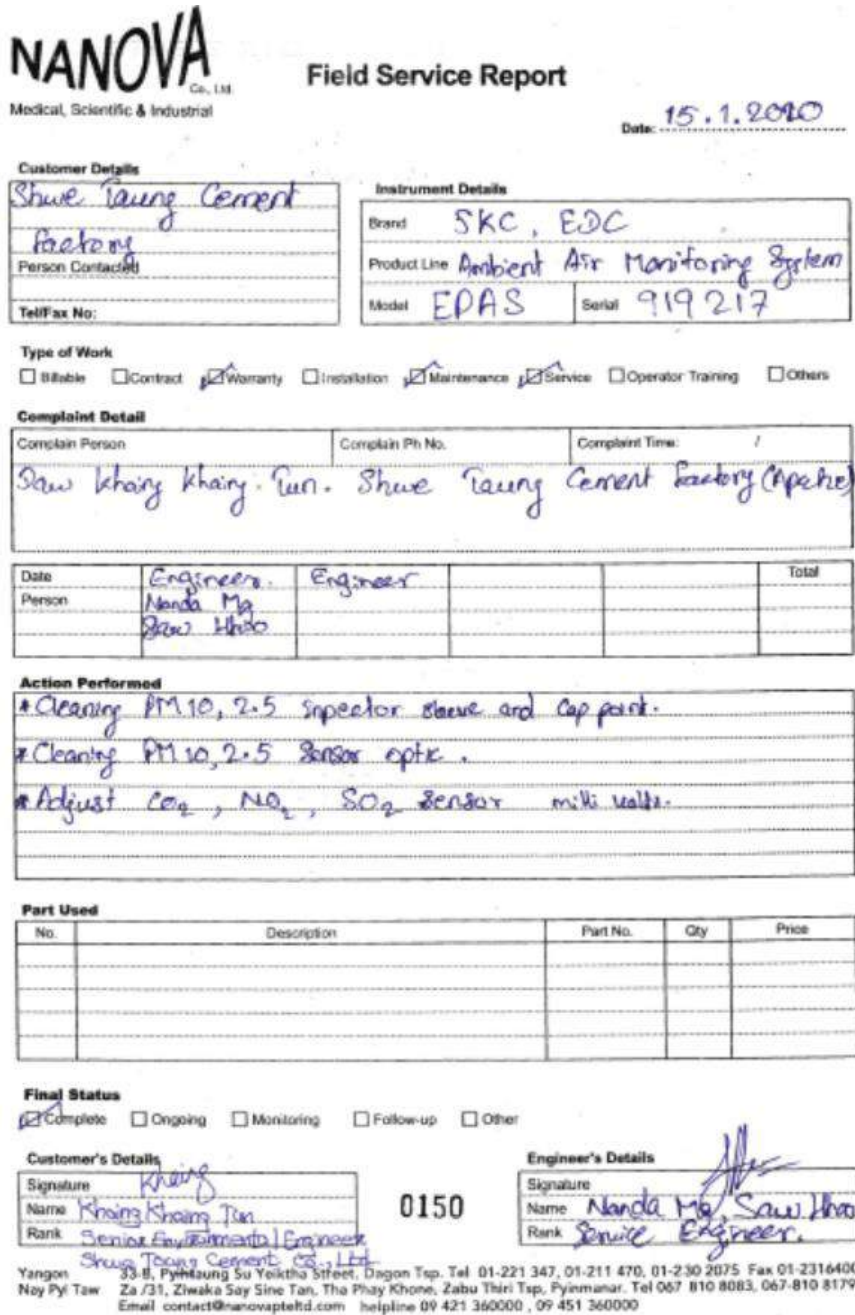 NANOVA Co., Ltd.
Medical, Scientific & Industrial
Field Service Report
Date: 15.1.2020
Customer Details
Shwe Taung Cement
factory
Person Contacted
Tel/Fax No:
Instrument Details
Brand SKC, EDC
Product Line Ambient Air Monitoring System
Model EPAS Serial 919217
Type of Work
Billable Contract Warranty Installation Maintenance Service Operator Training Others
Complaint Detail
Complain Person Complain Ph No. Complaint Time: /
Daw Khaing Khaing Tun. Shwe Taung Cement factory (Apache)
Date Engineer. Engineer Total
Person Nanda Mg
Saw Htoo
Action Performed
* Cleaning PM 10, 2.5 Inpector sleeve and Cap point.
* Cleaning PM 10, 2.5 Sensor optic.
* Adjust CO2, NO2, SO2 Sensor milli volts.
Part Used
No. Description Part No. Qty Price
Final Status
Complete Ongoing Monitoring Follow-up Other
Customer's Details
Signature Khaing
Name Khaing Khaing Tun
Rank Senior Environmental Engineer
Shwe Taung Cement Co., Ltd
0150
Engineer's Details
Signature
Name Nanda Mg, Saw Htoo
Rank Service Engineer.
Yangon 33-B, Pyihtaung Su Yeiktha Street, Dagon Tsp. Tel 01-221 347, 01-211 470, 01-230 2075 Fax 01-2316400
Nay Pyi Taw Za /31, Ziwaka Say Sine Tan, Tha Phay Khone, Zabu Thiri Tsp, Pyinmanar. Tel 067 810 8083, 067-810 8179
Email contact@nanovapteltd.com helpline 09 421 360000 , 09 451 360000